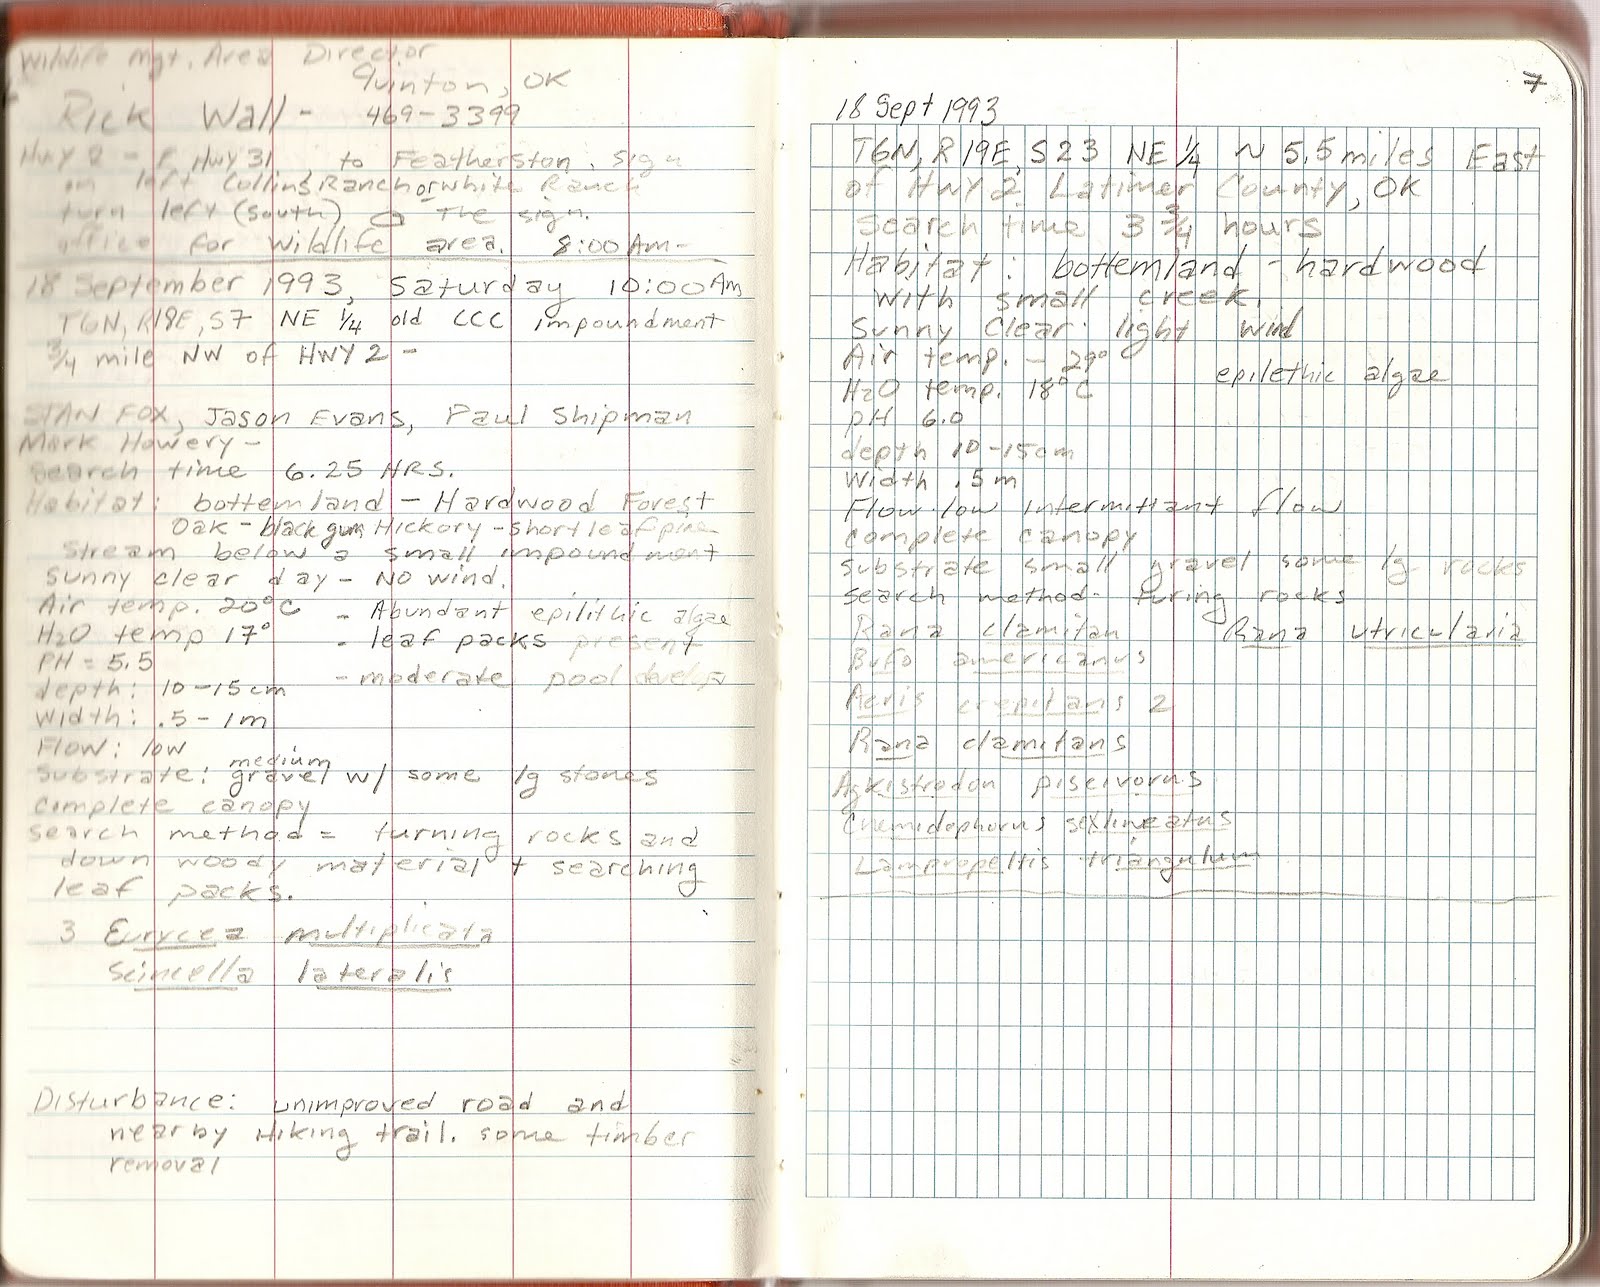 Wildlife Mgt. Area Director
Quinton, OK
Rick Wall - 469-3399
HWY 2 - HWY 31 to Featherston. Sign
on left Collins Ranch or White Ranch
turn left (south) @ The sign.
office for wildlife area. 8:00 Am-
18 September 1993, Saturday 10:00 Am
T6N, R18E, S7 NE 1/4 old CCC impoundment
3/4 mile NW of HWY 2 -
STAN FOX, Jason Evans, Paul Shipman
Mark Howery -
Search time 6.25 HRS.
Habitat: bottemland - Hardwood Forest
Oak - black gum Hickory - Shortleaf pine
Stream below a small impoundment
Sunny clear day - NO wind.
Air temp. 20°C - Abundant epilithic algae
H2O temp 17° - leaf packs present
PH = 5.5
depth: 10-15cm - moderate pool develop
Width: .5 - 1m
Flow: low
medium
Substrate: gravel w/ some lg stones
complete canopy
Search method = turning rocks and
down woody material + searching
leaf packs.
3 Eurycea multiplicata
Scincella lateralis
Disturbance: unimproved road and
nearby Hiking trail. some timber
removal
7
18 Sept 1993
T6N, R19E, S23 NE 1/4 ~ 5.5 miles East
of HWY 2. Latimer County, OK
Search time 3 3/4 hours
Habitat: bottemland - hardwood
with small creek.
Sunny Clear. light wind
Air temp. - 29°
epilethic algae
H2O temp. 18°C
pH 6.0
depth 10-15cm
Width .5m
Flow. low intermittant flow
complete canopy
substrate small gravel some lg rocks
Search method- turing rocks
Rana clamitan Rana utricularia
Bufo americanus
Acris crepitans 2
Rana clamitans
Agkistrodon piscivorus
Cnemidophorus sexlineatus
Lampropeltis triangulum